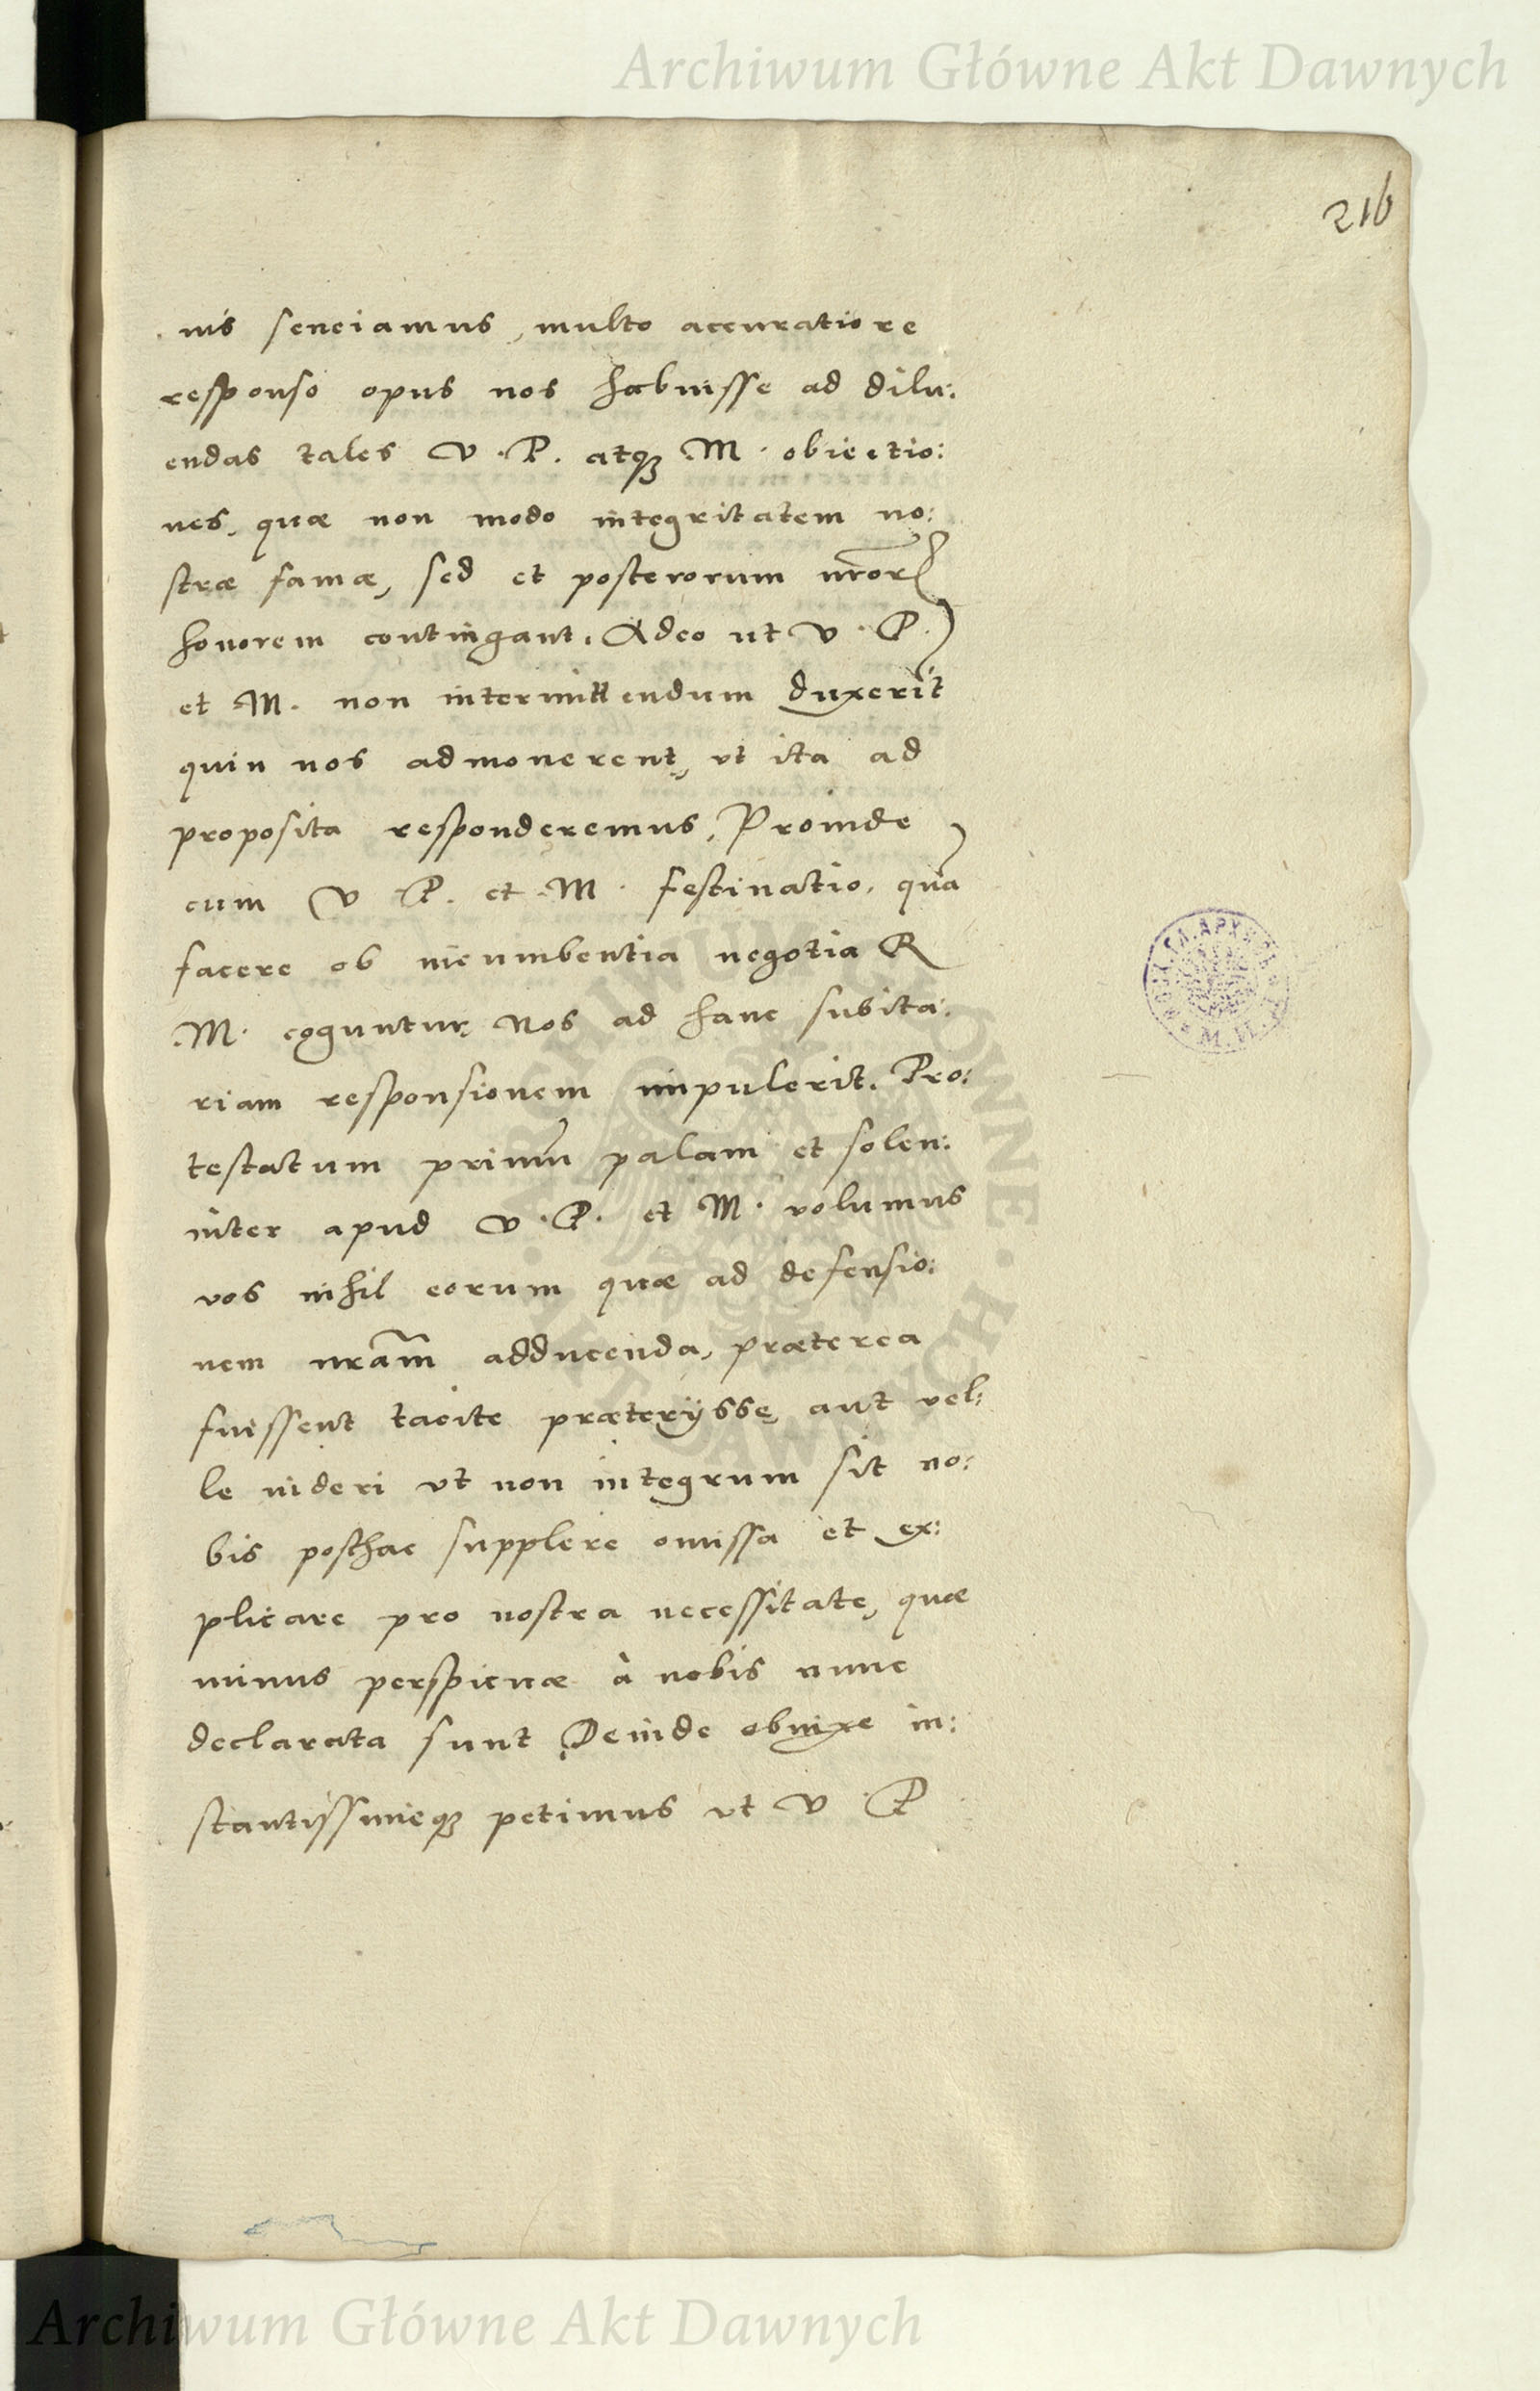 Archiwum Główne Akt Dawnych
216
nis senciamus, multo accuratiore
responso opus nos habuisse ad dilu:
endas tales V. P. atq3 M. obiectio:
nes, quæ non modo integritatem no:
stræ famæ, sed et posterorum nror
honorem contingant. Adeo ut V. P.
et M. non intermittendum duxerit
quin nos admonerent, ut ita ad
proposita responderemus. Proinde
cum V P. et M. festinatio, quā
facere ob incumbentia negotia R
M. coguntur, Nos ad hanc subita:
riam responsionem impulerit. Pro:
testatum primū palam et solen:
niter apud V. P. et M. volumus
nos nihil eorum quæ ad defensio:
nem nram̄ adducenda, præterea
fuissent tacite præterijsse, aut vel:
le uideri ut non integrum sit no:
bis posthac supplere omissa et ex:
plicare pro nostra necessitate, quæ
minus perspicuæ à nobis nunc
declarata sunt Deinde obnixe in:
stantissimeq3 petimus ut V. P
Archiwum Główne Akt Dawnych